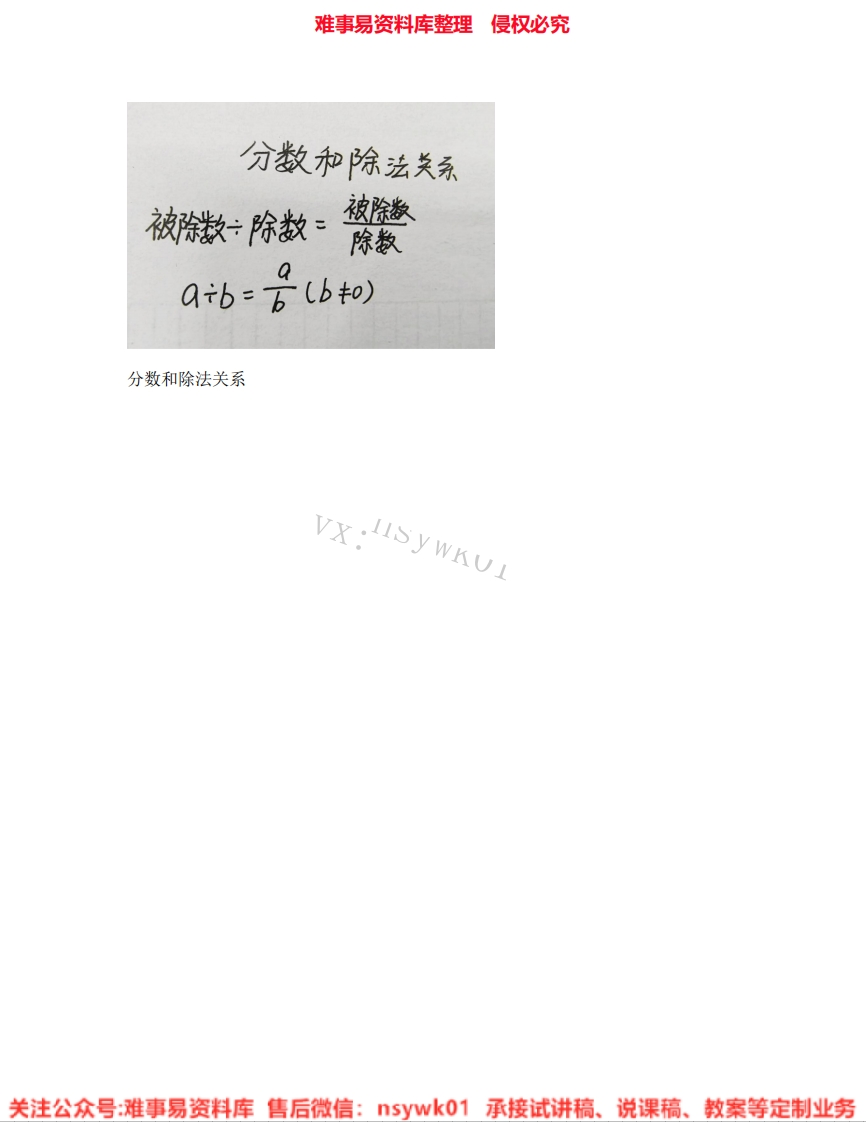 难事易资料库整理 侵权必究
分数和除法关系
被除数÷除数=被除数/除数
a÷b=a/b(b≠0)
分数和除法关系
VX:nsywk01
关注公众号:难事易资料库 售后微信: nsywk01 承接试讲稿、说课稿、教案等定制业务